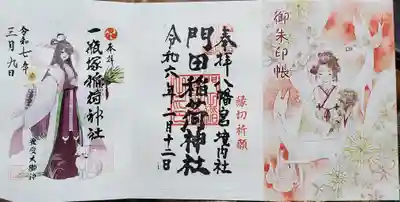 御朱印帳
奉拝 八幡宮境内社
縁切祈願
門田稲荷神社
令和六年一月十二日
奉拝
一瓶塚稲荷神社
令和七年
三月九日